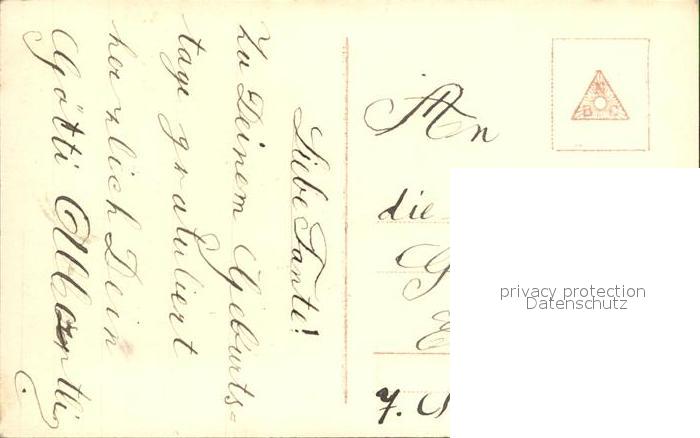 Liebe Tante!
Zu Deinem Geburts=
tage gratuliert
herzlich Dein
Götti Albertli.
An
die
7.
N
B C
privacy protection
Datenschutz